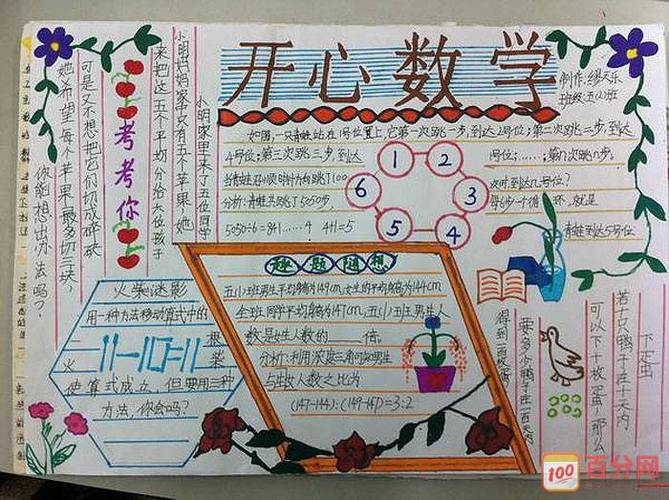 开心数学
制作:缪天乐
班级:五(2)班
如图,一只青蛙站在1号位置上,它第一次跳一步,到达2号位;第二次跳二步,到达
4号位;第三次跳三步,到达
1号位;……,第几次跳几步。
当青蛙沿顺时针方向跳了100
次时,到达几号位?
分析:青蛙共跳了5050步。
每6步一个循环,就是
5050÷6=841……4 4+1=5
青蛙到达5号位
1
2
3
4
5
6
小明家里来了五位同学
小明妈妈家中只有五个苹果,她
来把这五个平均分给六位孩子
可是又不想把它们切成碎碎
她希望每个苹果最多切三块,
你能想出办法吗?
考考你
火柴谜影
用一种方法移动算式中的
一根火柴
使算式成立,但要用三种
方法,你会吗?
趣题随想
五(1)班男生平均身高为149cm,女生的平均身高为144cm
全班同学平均身高为147cm,五(1)班男生人
数是女生人数的____倍。
与生女人数之比为
(147-144):(149-147)=3:2
下蛋
若十只鸭子在十天内
可以下十枚蛋,那么
要多少鸭子在一百天内
得到一百枚蛋?
100
百分网